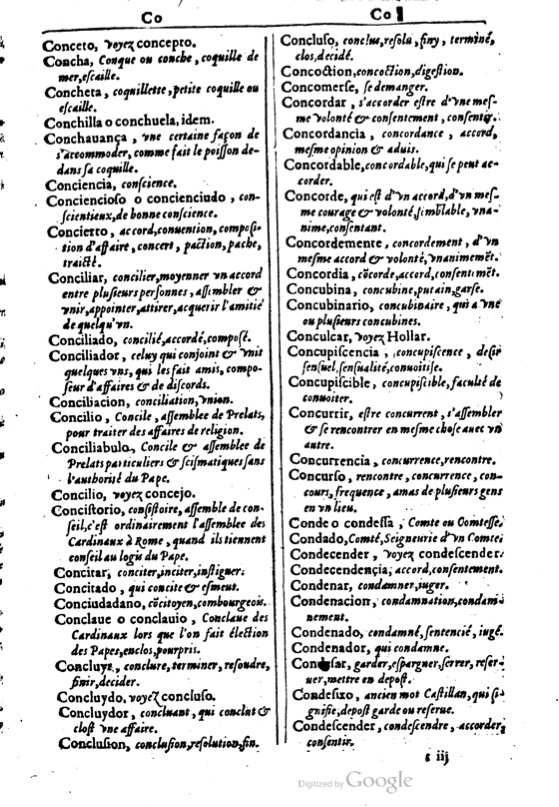 Co
Conceto, voyez concepto.
Concha, Conque ou conche, coquille de
mer, escaille.
Concheta, coquillette, petite coquille ou
escaille.
Conchilla o conchuela, idem.
Conchauança, vne certaine façon de
s'accommoder, comme fait le poisson de-
dans sa coquille.
Conciencia, conscience.
Conciencioso o concienciudo, con-
scientieux, de bonne conscience.
Concierto, accord, conuention, composi-
tion d'affaire, concert, paction, pache,
traicté.
Conciliar, concilier, moyenner vn accord
entre plusieurs personnes, assembler &
vnir, appointer, attirer, acquerir l'amitié
de quelqu'vn.
Conciliado, concilié, accordé, composé.
Conciliador, celuy qui conjoint & vnit
quelques vns, qui les fait amis, compo-
seur d'affaires & de discords.
Conciliacion, conciliation, vnion.
Concilio, Concile, assemblee de Prelats,
pour traiter des affaires de religion.
Conciliabulo, Concile & assemblee de
Prelats particuliers & scismatiques sans
l'authorité du Pape.
Concilio, voyez concejo.
Concistorio, consistoire, assemble de con-
seil, c'est ordinairement l'assemblee des
Cardinaux à Rome, quand ils tiennent
conseil au logis du Pape.
Concitar, conciter, inciter, instiguer.
Concitado, qui concite & esmeut.
Conciudadano, cōcitoyen, combourgeois.
Conclaue o conclauio, Conclaue des
Cardinaux lors que l'on fait élection
des Papes, enclos, pourpris.
Concluyr, conclure, terminer, resoudre,
finir, decider.
Concluydo, voyez concluso.
Concluydor, concluant, qui conclut &
clost vne affaire.
Conclusion, conclusion, resolution, fin.
Co
Concluso, conclus, resolu, finy, terminé,
clos, decidé.
Concoction, concoction, digestion.
Concomerse, se demanger.
Concordar, s'accorder estre d'vne mes-
me volonté & consentement, consentir.
Concordancia, concordance, accord,
mesme opinion & aduis.
Concordable, concordable, qui se peut ac-
corder.
Concorde, qui est d'vn accord, d'vn mes-
me courage & volonté, semblable, vna-
nime, consentant.
Concordemente, concordement, d'vn
mesme accord & volonté, vnanimemēt.
Concordia, cōcorde, accord, consentimēt.
Concubina, concubine, putain, garse.
Concubinario, concubinaire, qui a vne
ou plusieurs concubines.
Conculcar, voyez Hollar.
Concupiscencia, concupiscence, desir
sensuel, sensualité, conuoitise.
Concupiscible, concupiscible, faculté de
conuoiter.
Concurrir, estre concurrent, s'assembler
& se rencontrer en mesme chose auec vn
autre.
Concurrencia, concurrence, rencontre.
Concurso, rencontre, concurrence, con-
cours, frequence, amas de plusieurs gens
en vn lieu.
Conde o condessa, Comte ou Comtesse.
Condado, Comté, Seigneurie d'vn Comte.
Condecender, voyez condescender.
Condecendencia, accord, consentement.
Condenar, condamner, iuger.
Condenacion, condamnation, condam-
nement.
Condenado, condamné, sentencié, iugé.
Condenador, qui condamne.
garder, espargner, serrer, reser-
uer, mettre en depost.
Condesixo, ancien mot Castillan, qui si-
gnifie, depost garde ou reserue.
Condescender, condescendre, accorder,
consentir.
iij
Digitized by Google